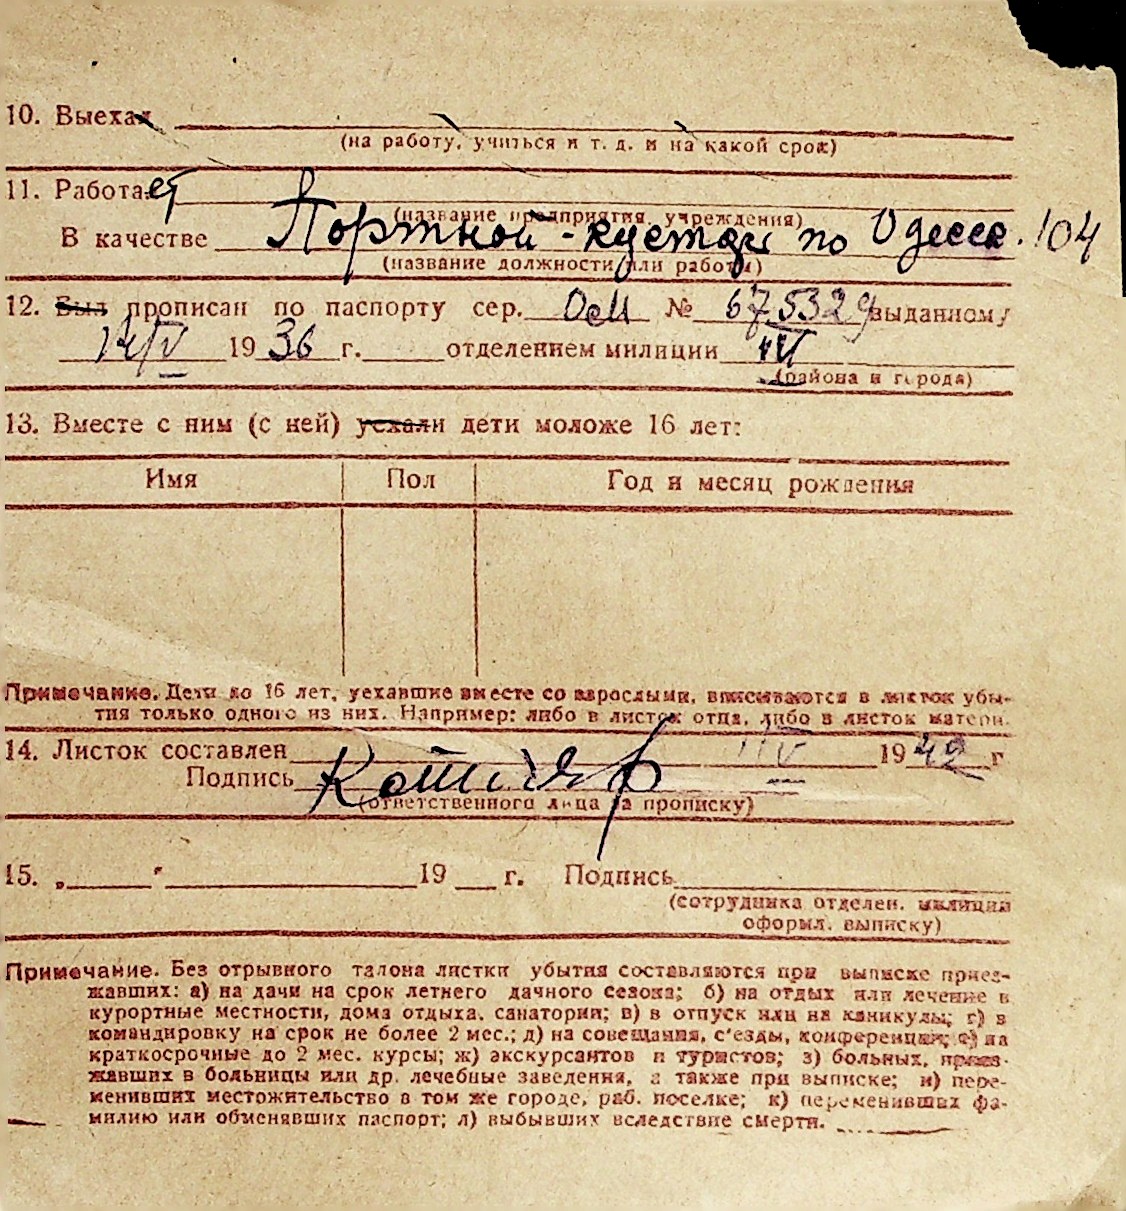 10. Выехал
(на работу, учиться и т. д. и на какой срок)
11. Работает
(название предприятия, учреждения)
В качестве Портной-кустарь по Одесск. 104
(название должности или работы)
12. Был прописан по паспорту сер. № 675329 выданному
IV 1936 г. отделением милиции
(района и города)
13. Вместе с ним (с ней) уехали дети моложе 16 лет:
Имя Пол Год и месяц рождения
Примечание. Дети до 16 лет, уехавшие вместе со взрослыми, вписываются в листок убы-
тия только одного из них. Например: либо в листок отца, либо в листок матери.
14. Листок составлен IV 1942 г
Подпись
(ответственного лица за прописку)
15. „ " 19 г. Подпись
(сотрудника отделен. милиции
оформл. выписку)
Примечание. Без отрывного талона листки убытия составляются при выписке приез-
жавших: а) на дачи на срок летнего дачного сезона; б) на отдых или лечение в
курортные местности, дома отдыха, санатории; в) в отпуск или на каникулы; г) в
командировку на срок не более 2 мес.; д) на совещания, с'езды, конференции; е) на
краткосрочные до 2 мес. курсы; ж) экскурсантов и туристов; з) больных, приез-
жавших в больницы или др. лечебные заведения, а также при выписке; и) пере-
менивших местожительство в том же городе, раб. поселке; к) переменивших фа-
милию или обменявших паспорт; л) выбывших вследствие смерти.